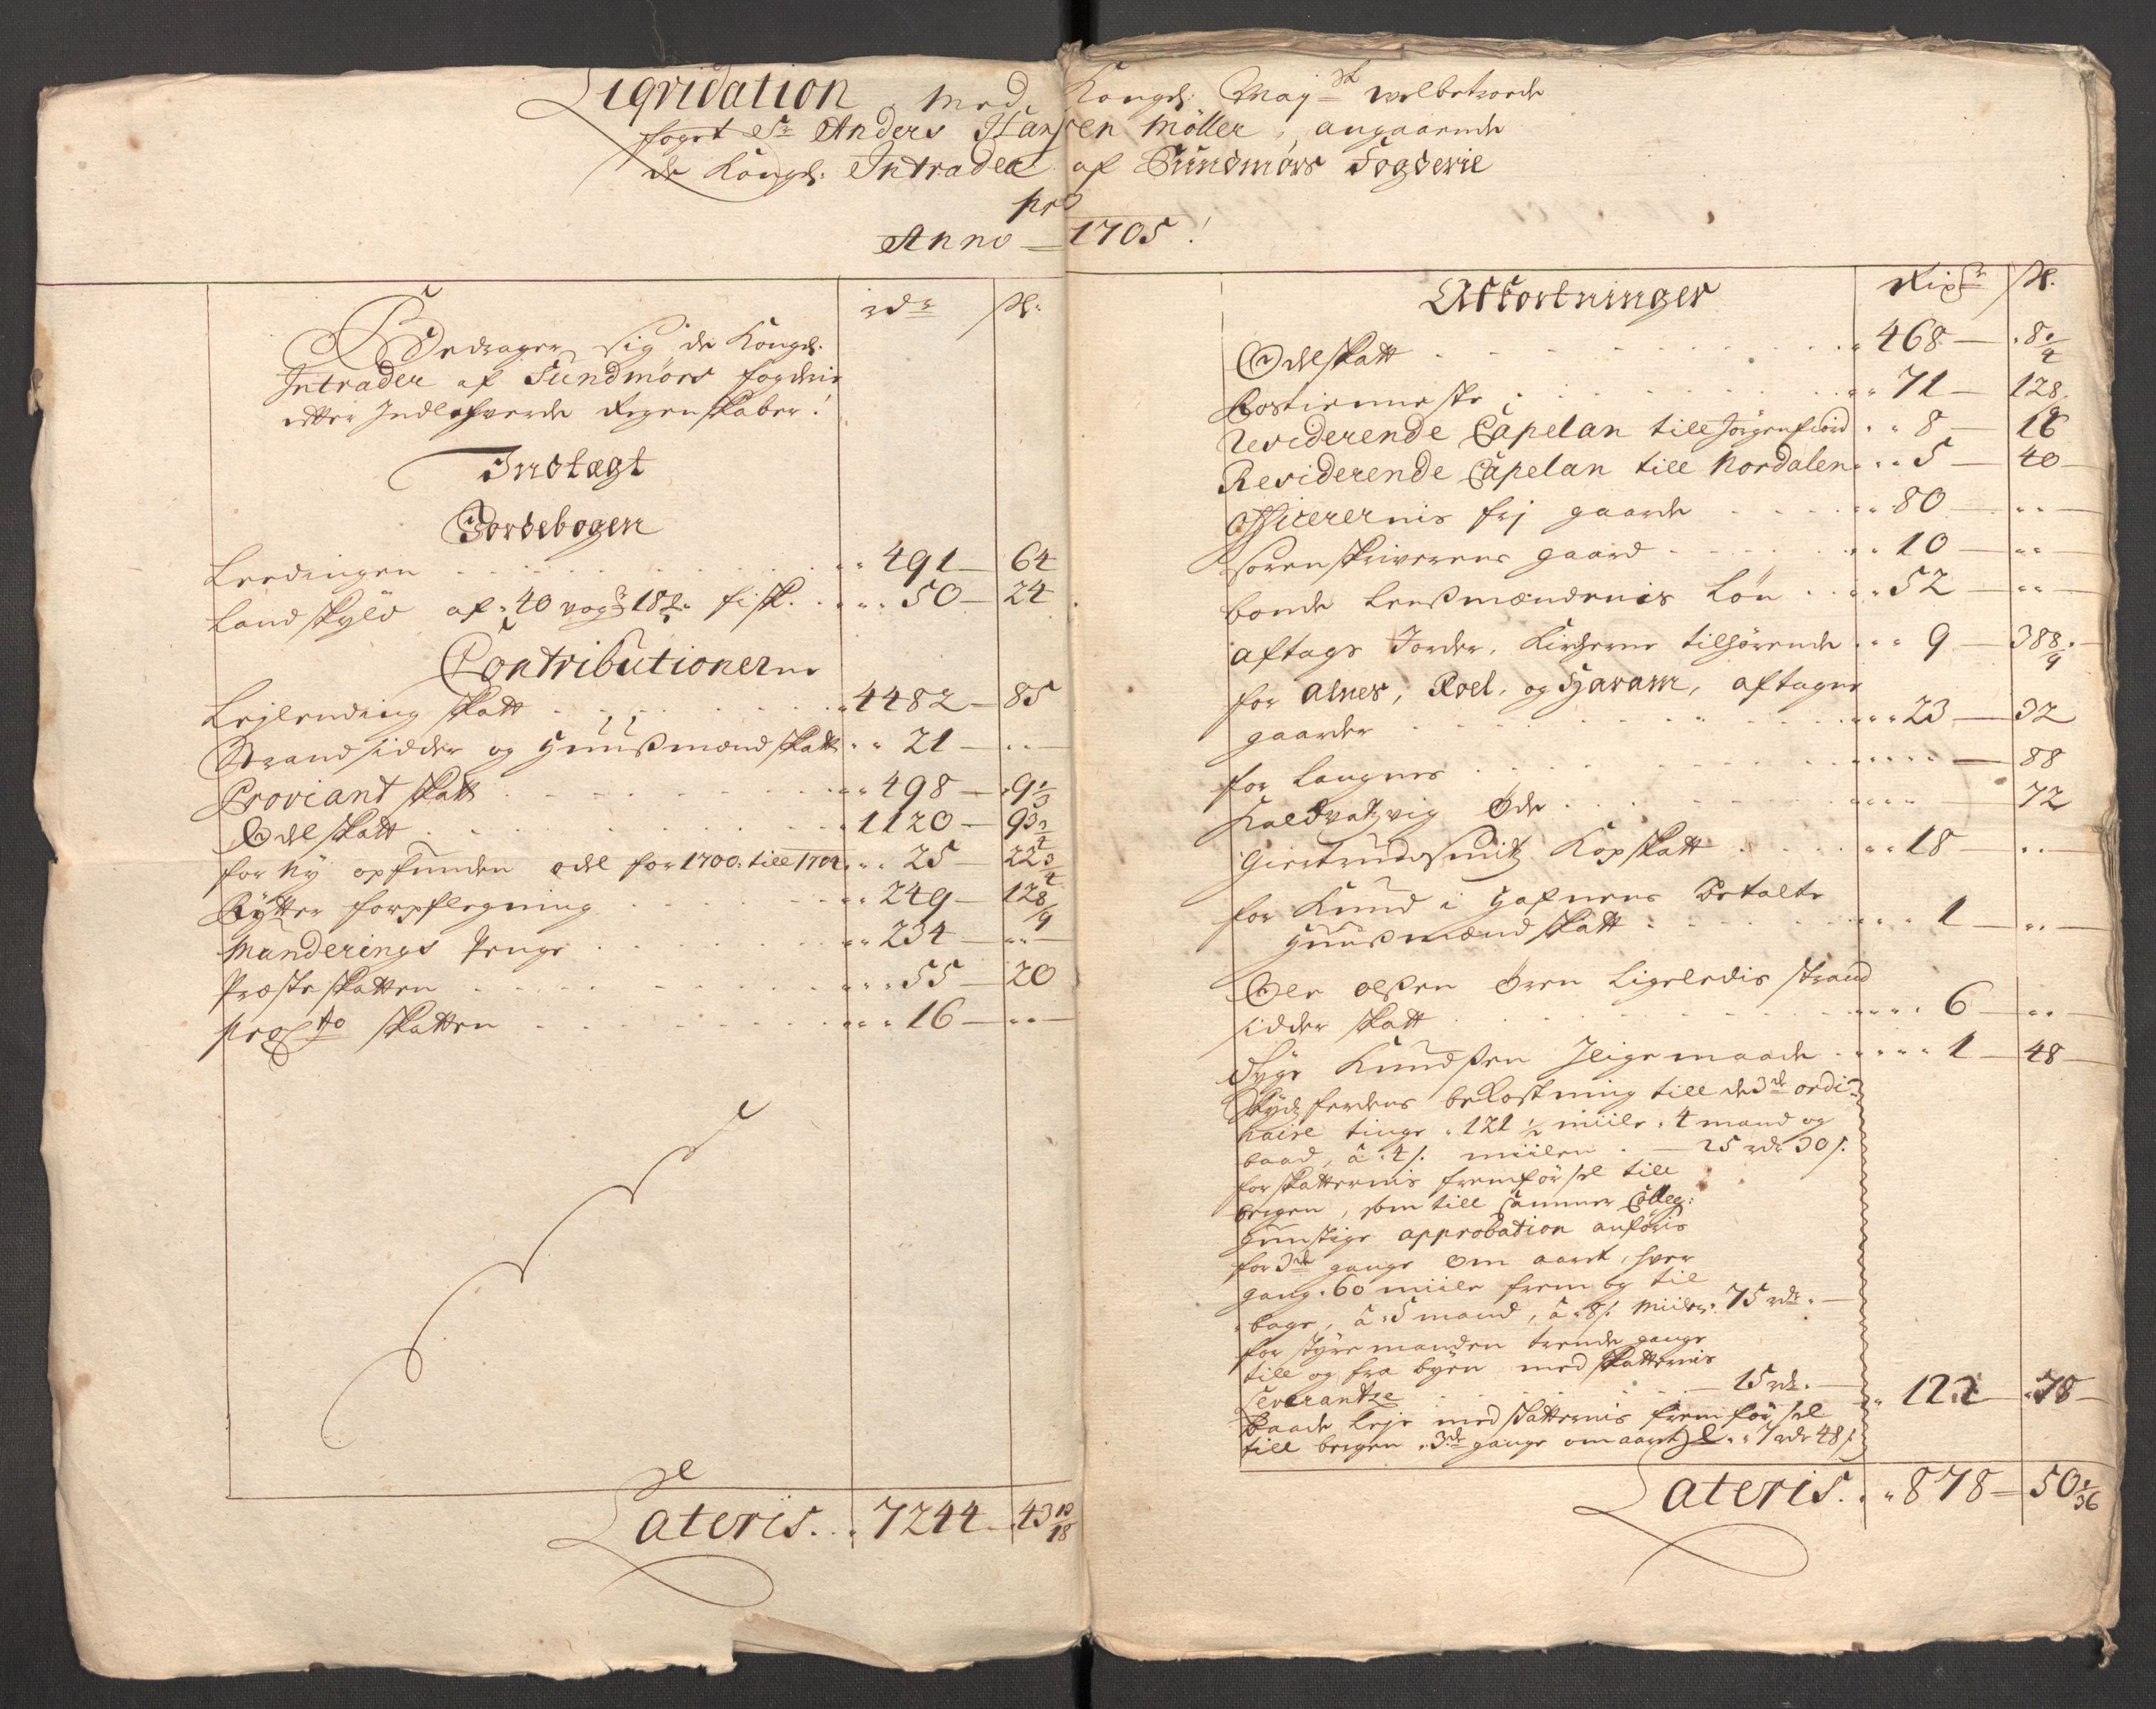 Liqvidation med Kongel: Maj.st welbetroede
foget Sr Anders Hansen Möller, angaaende
de Kongel: Intrader af Sundmörs Fogderie
pro
Anno 1705!
rdr s:
Bedrager sig de Kongel:
Intrader af Sundmörs fogderie
etter Indlefverede Regenskaber!
Indtægt
Jordebogen
Leedingen 491 64
Landskyld af 40 vog 18 fisk. 50 24
Contributionerne
Lejlending skatt 4482 85
Strandsidder og Huusmænd skatt 21
Proviant skatt 498 9 1/3
Odelskatt 1120 93 3/4
for Ny opfunden odel for 1700: till 1704 25 22 3/4
Rytter forpflegning 249 12 8/9
Munderings Penge 234
Præste skatten 55 20
skatten 16
Lateris 7244 43
Afkortninger Rixdr s.
Odelskatt 468 8 1/4
Rostienneste 71 12 8/9
Residerende Capelan till Jörgenfiord 8 16
Residerende Capelan till Nordalen 5 40
Officerernis frj gaarde 80
Sorenskriverens gaard 10
bonde Lensmændenis Lön 52
aftags Jorder, Kircherne tilhörende 9 38 8/9
for Alnes, Roel, og Hjaram, aftagne
gaarder 23 32
for Langnes 88
Kaldvatzvig Öde 72
Giertrud Smitz Kopskatt 18
for Knud i Hafnens Betalte
Huusmænd skatt 1
Ole Olsen Ören Ligeledis strand
sidder skatt 6
Knudsen Jligemaade 1 48
Skydzferdens bekostning till de 3de ordi-
naire tinge 121 1/2 miile 4 mand og
baad, à 4 s. miilen 25 rdr 30 s.
for skatternis fremförsel till
bergen, som till Cammer Colleg:
gunstige approbation anföris
for 3de gange om aaret, hver
gang 60 miile frem og til
bage, à 5 mand, à 8 s. Miilen 75 rdr
for styremanden trende gange
till og fra byen med skatternis
Leverantze 15 rdr
Baade leje med skatternis fremförsel
till bergen 3de gange om aaret 7 rdr 48 s 122 78
Lateris 878 50 1/36